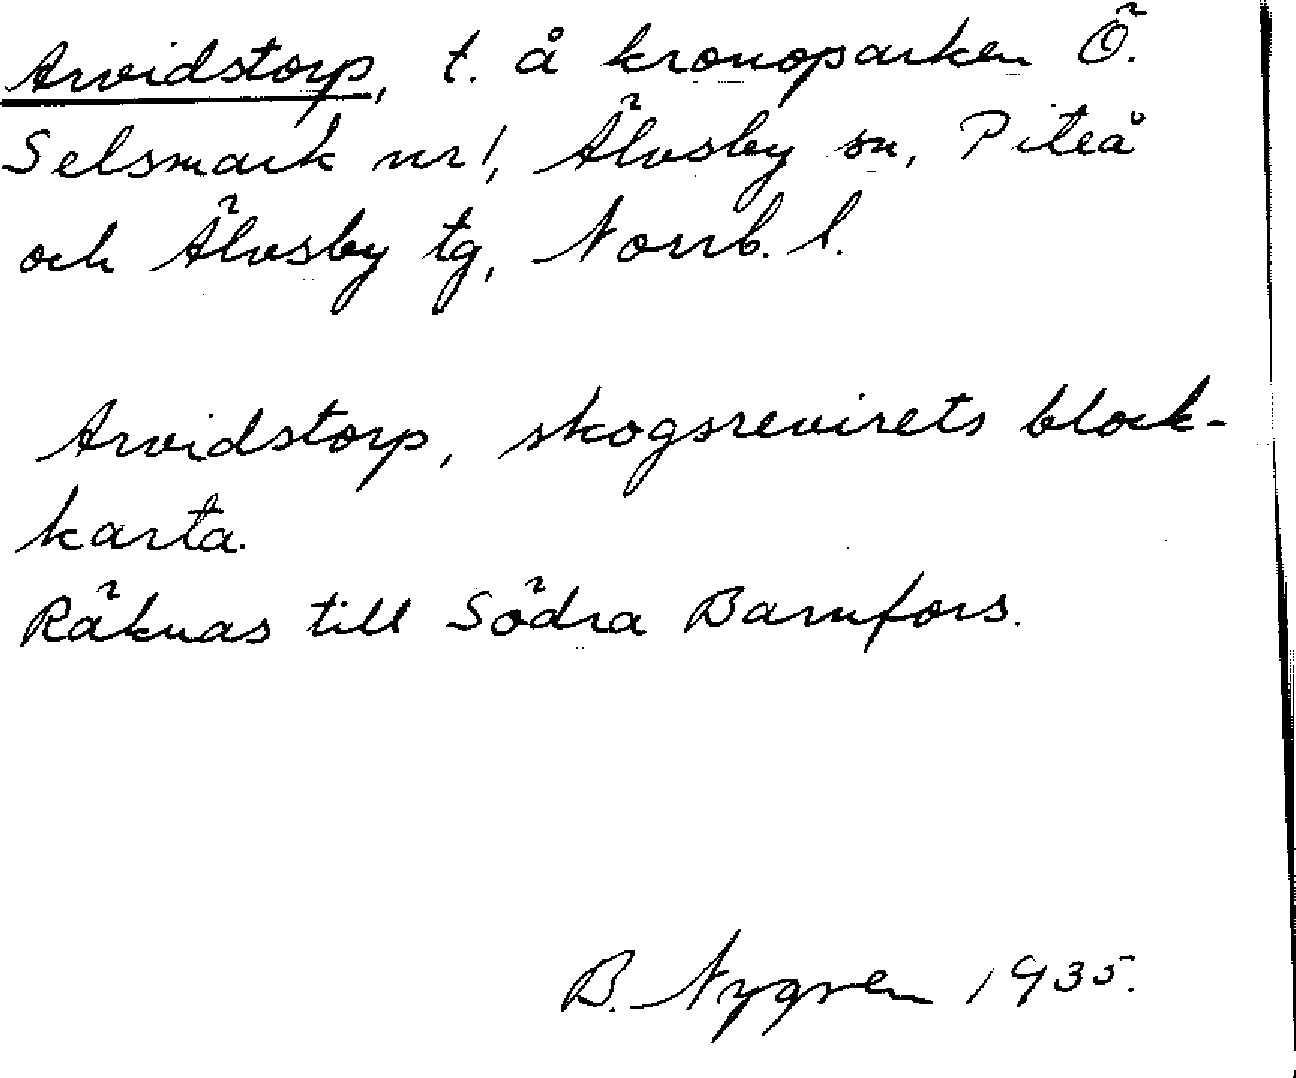 Arvidstorp, t. å kronoparken Ö.
Selsmark nr 1, Älvsby sn, Piteå
och Älvsby tg, Norrb. l.
Arvidstorp, skogsrevirets block-
karta.
Räknas till Södra Barnfors.
B. Nygren 1935.